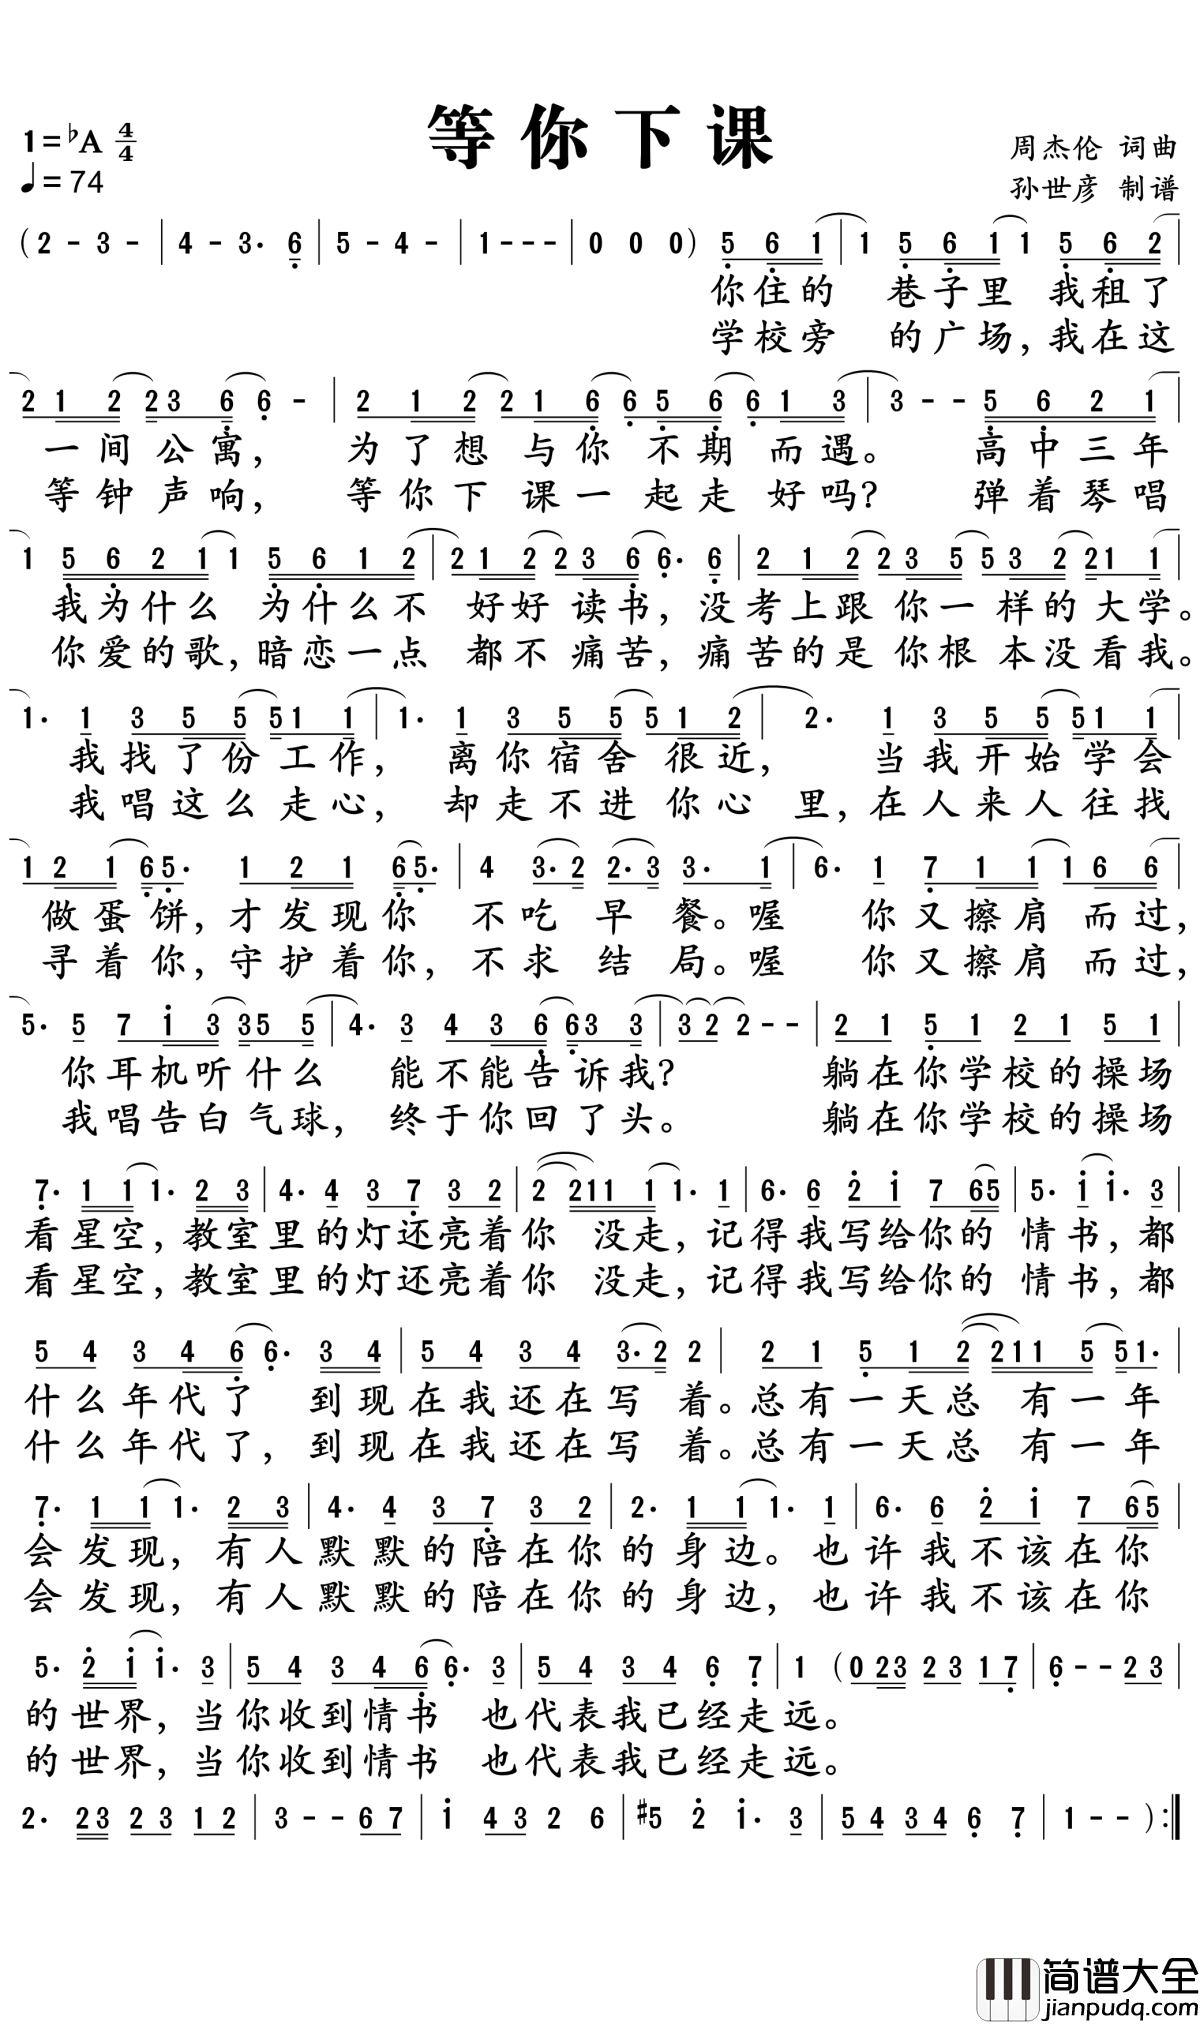 等你下课
1=♭A 4/4
♩=74
周杰伦 词曲
孙世彦 制谱
(2 - 3 - | 4 - 3· 6 | 5 - 4 - | 1 - - - | 0 0 0) 5 6 1 | 1 5 6 1 1 5 6 2 |
你住的 巷子里 我租了
学校旁 的广场, 我在这
2 1 2 2 3 6 6 - | 2 1 2 2 1 6 6 5 6 6 1 3 | 3 - - 5 6 2 1 |
一间公寓, 为了想与你 不期而遇。 高中三年
等钟声响, 等你下课一起走 好吗? 弹着琴唱
1 5 6 2 1 1 5 6 1 2 | 2 1 2 2 3 6 6· 6 | 2 1 2 2 3 5 5 3 2 2 1 1 |
我为什么 为什么不 好好读书, 没考上跟 你一样的大学。
你爱的歌, 暗恋一点 都不痛苦, 痛苦的是 你根本没看我。
1· 1 3 5 5 5 1 1 | 1· 1 3 5 5 5 1 2 | 2· 1 3 5 5 5 1 1 |
我找了份工作, 离你宿舍很近, 当我开始学会
我唱这么走心, 却走不进你心里, 在人来人往找
1 2 1 6 5· 1 2 1 6 5· | 4 3· 2 2· 3 3· 1 | 6· 1 7 1 1 1 6 6 |
做蛋饼, 才发现你 不吃早餐。喔 你又擦肩而过,
寻着你, 守护着你, 不求结局。喔 你又擦肩而过,
5· 5 7 1 3 3 5 5 | 4· 3 4 3 6 6 3 3 | 3 2 2 - - | 2 1 5 1 2 1 5 1 |
你耳机听什么 能不能告诉我? 躺在你学校的操场
我唱告白气球, 终于你回了头。 躺在你学校的操场
7· 1 1 1· 2 3 | 4· 4 3 7 3 2 | 2 2 1 1 1 1· 1 | 6· 6 2 1 7 6 5 | 5· 1 1· 3 |
看星空, 教室里的灯还亮着你 没走, 记得我写给你的 情书, 都
看星空, 教室里的灯还亮着你 没走, 记得我写给你的 情书, 都
5 4 3 4 6 6· 3 4 | 5 4 3 4 3· 2 2 | 2 1 5 1 2 2 1 1 5 5 1· |
什么年代了 到现在我还在写着。总有一天总 有一年
什么年代了, 到现在我还在写着。总有一天总 有一年
7· 1 1 1· 2 3 | 4· 4 3 7 3 2 | 2· 1 1 1· 1 | 6· 6 2 1 7 6 5
会发现, 有人默默的陪在你的身边。也许我不该在你
会发现, 有人默默的陪在你的身边, 也许我不该在你
5· 2 1 1· 3 | 5 4 3 4 6 6· 3 | 5 4 3 4 6 7 | 1 (0 2 3 2 3 1 7 | 6 - - 2 3 |
的世界, 当你收到情书 也代表我已经走远。
的世界, 当你收到情书 也代表我已经走远。
2· 2 3 2 3 1 2 | 3 - - 6 7 | 1 4 3 2 6 | #5 2 1· 3 | 5 4 3 4 6 7 | 1 - - ) :|
简谱大全
jianpudq.com